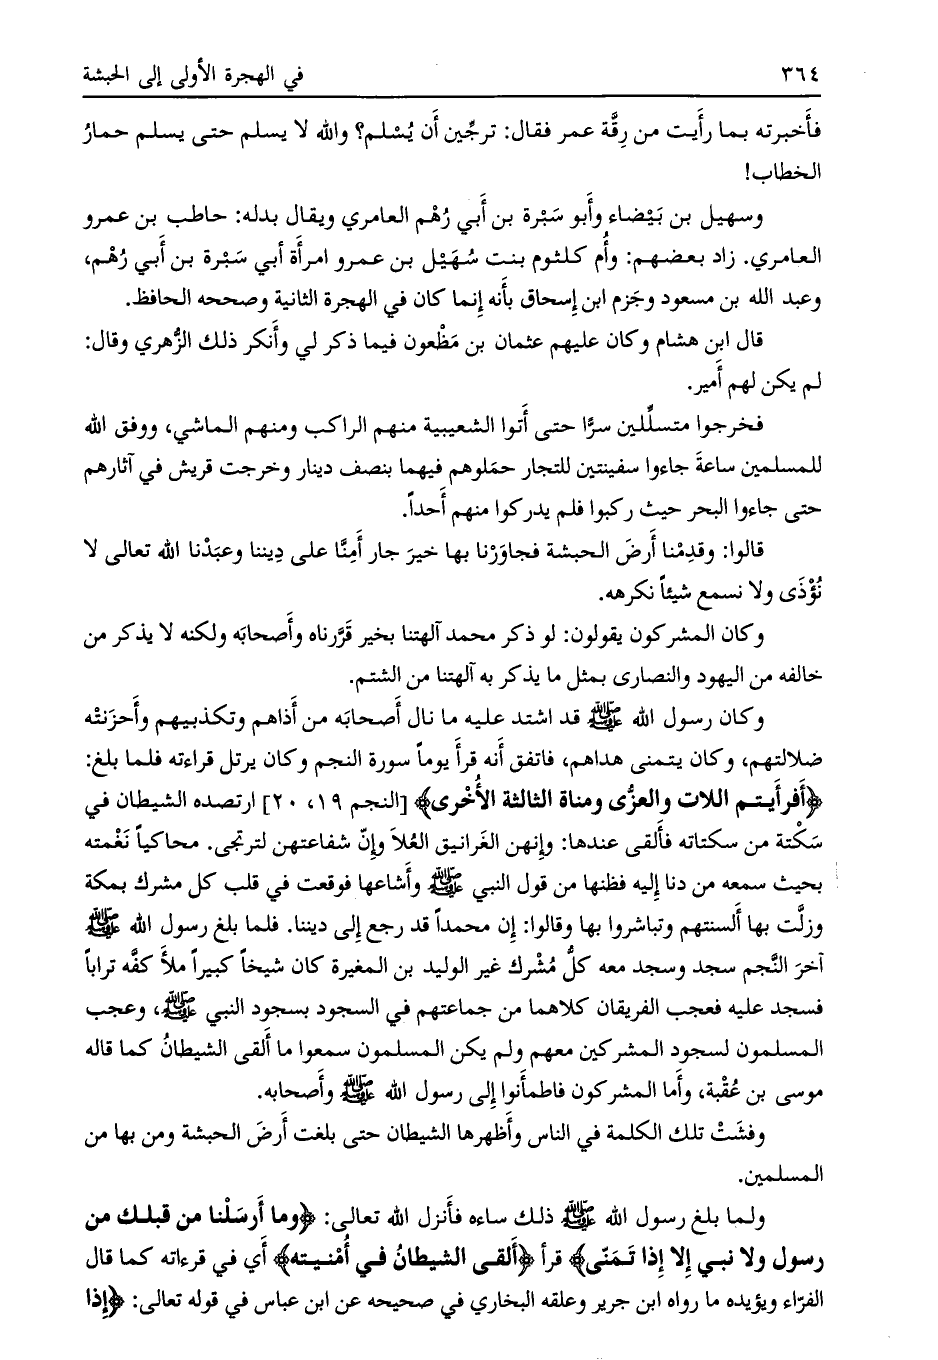 ٣٦٤ في الهجرة الأولى إلى الحبشة
فأَخبرته بما رأَيت من رِقَّة عمر فقال: ترجِّين أَن يُسْلم؟ والله لا يسلم حتى يسلم حمارُ
الخطاب!
وسهيل بن بَيْضاء وأَبو سَبْرة بن أَبي رُهْم العامري ويقال بدله: حاطب بن عمرو
العامري. زاد بعضهم: وأُم كلثوم بنت سُهَيْل بن عمرو امرأَة أبي سَبْرة بن أَبي رُهْم،
وعبد الله بن مسعود وجَزم ابن إِسحاق بأَنه إِنما كان في الهجرة الثانية وصححه الحافظ.
قال ابن هشام وكان عليهم عثمان بن مَظْعون فيما ذكر لي وأَنكر ذلك الزُّهري وقال:
لم يكن لهم أَمير.
فخرجوا متسلِّلين سرًّا حتى أَتوا الشعيبية منهم الراكب ومنهم الماشي، ووفق الله
للمسلمين ساعةَ جاءوا سفينتين للتجار حمَلوهم فيهما بنصف دينار وخرجت قريش في آثارهم
حتى جاءوا البحر حيث ركبوا فلم يدركوا منهم أَحداً.
قالوا: وقدِمْنا أَرضَ الحبشة فجاوَرْنا بها خيرَ جار أَمِنَّا على دِيننا وعبَدْنا الله تعالى لا
نُؤْذَى ولا نسمع شيئاً نكرهه.
وكان المشركون يقولون: لو ذكر محمد آلهتنا بخير قَرَّرناه وأَصحابَه ولكنه لا يذكر من
خالفه من اليهود والنصارى بمثل ما يذكر به آلهتنا من الشتم.
وكان رسول الله ﷺ قد اشتد عليه ما نال أَصحابَه من أَذاهم وتكذيبهم وأَحزَنتْه
ضلالتهم، وكان يتمنى هداهم، فاتفق أَنه قرأَ يوماً سورة النجم وكان يرتل قراءته فلما بلغ:
﴿أَفرأَيتم اللات والعزُّى ومناة الثالثة الأُخْرى﴾ [النجم ١٩، ٢٠] ارتصده الشيطان في
سَكْتة من سكتاته فأَلقى عندها: وإِنهن الغَرانيق العُلاَ وإِنّ شفاعتهن لترتجى. محاكياً نَغْمته
بحيث سمعه من دنا إِليه فظنها من قول النبي ﷺ وأَشاعها فوقعت في قلب كل مشرك بمكة
وزلَّت بها أَلسنتهم وتباشروا بها وقالوا: إِن محمداً قد رجع إِلى ديننا. فلما بلغ رسول الله ﷺ
آخرَ النَّجم سجد وسجد معه كلُّ مُشْرك غير الوليد بن المغيرة كان شيخاً كبيراً ملأَ كفَّه تراباً
فسجد عليه فعجب الفريقان كلاهما من جماعتهم في السجود بسجود النبي ﷺ، وعجب
المسلمون لسجود المشركين معهم ولم يكن المسلمون سمعوا ما أَلقى الشيطانُ كما قاله
موسى بن عُقْبة، وأَما المشركون فاطمأَنوا إِلى رسول الله ﷺ وأَصحابه.
وفشَتْ تلك الكلمة في الناس وأَظهرها الشيطان حتى بلغت أَرضَ الحبشة ومن بها من
المسلمين.
ولما بلغ رسول الله ﷺ ذلك ساءه فأَنزل الله تعالى: ﴿وما أَرسَلْنا من قبلك من
رسول ولا نبي إِلا إِذا تَمَنّى﴾ قرأ ﴿أَلقى الشيطانُ في أُمْنيته﴾ أَي في قرءاته كما قال
الفرّاء ويؤيده ما رواه ابن جرير وعلقه البخاري في صحيحه عن ابن عباس في قوله تعالى: ﴿إِذا